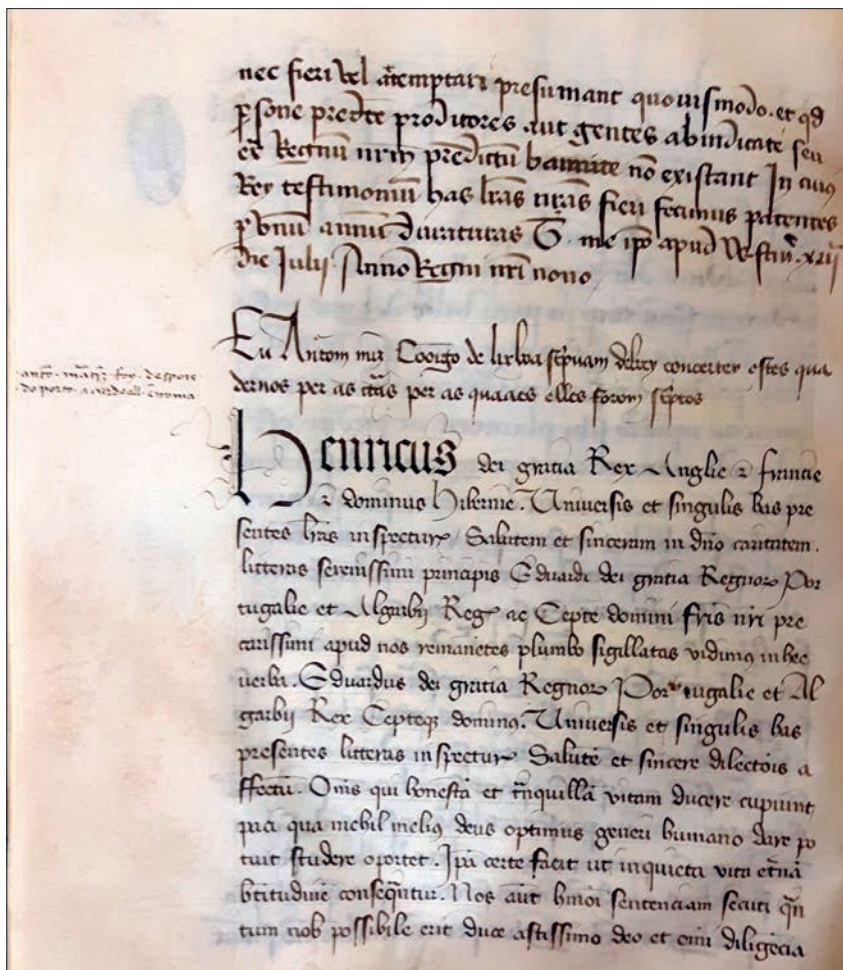 nec fieri vel attemptari presumant quovismodo. et qd
psone predce proditores aut gentes abindicate seu
Regnu nrm predictu bannite no existant In cuius
Rey testimoniu has lras nras fieri fecimus patentes
p vnu annu duraturas T. me ipo apud Westm. xvii
die Julii Anno Regni nri nono
Eu Antom miz Coorigo de lixboa sepvam delrey concertey estes qua
dernos per as ctas per as quaaes elles forom septos
do porto a cardeall e roma
Henricus dei gratia Rex Anglie z francie
z dominus hibernie. Universis et singulis has pre
sentes lras inspectur Salutem et sinceram in dno caritatem.
litteras serenissimi principis Eduardi dei gratia Regnor Por
tugalie et Algarbij Reg ac Cepte domini fris nri pre
carissimi apud nos remanetes plumbo sigillatas vidimus in hec
verba. Eduardus dei gratia Regnor Portugalie et Al
garbij Rex Cepteq dominus. Universis et singulis has
presentes litteras inspectur Salute et sincere dilectois a
ffectu. Omis qui honesta et tnquilla vitam ducere cupiunt
paci qua nichil melius deus optimus generi humano dare po
tuit studere oportet. Ipa certe facit ut in quieta vita etna
btitudine consequntur. Nos aut hmoi sentenciam secuti qn
tum nob possibile erit duce altissimo deo et omi diligecia